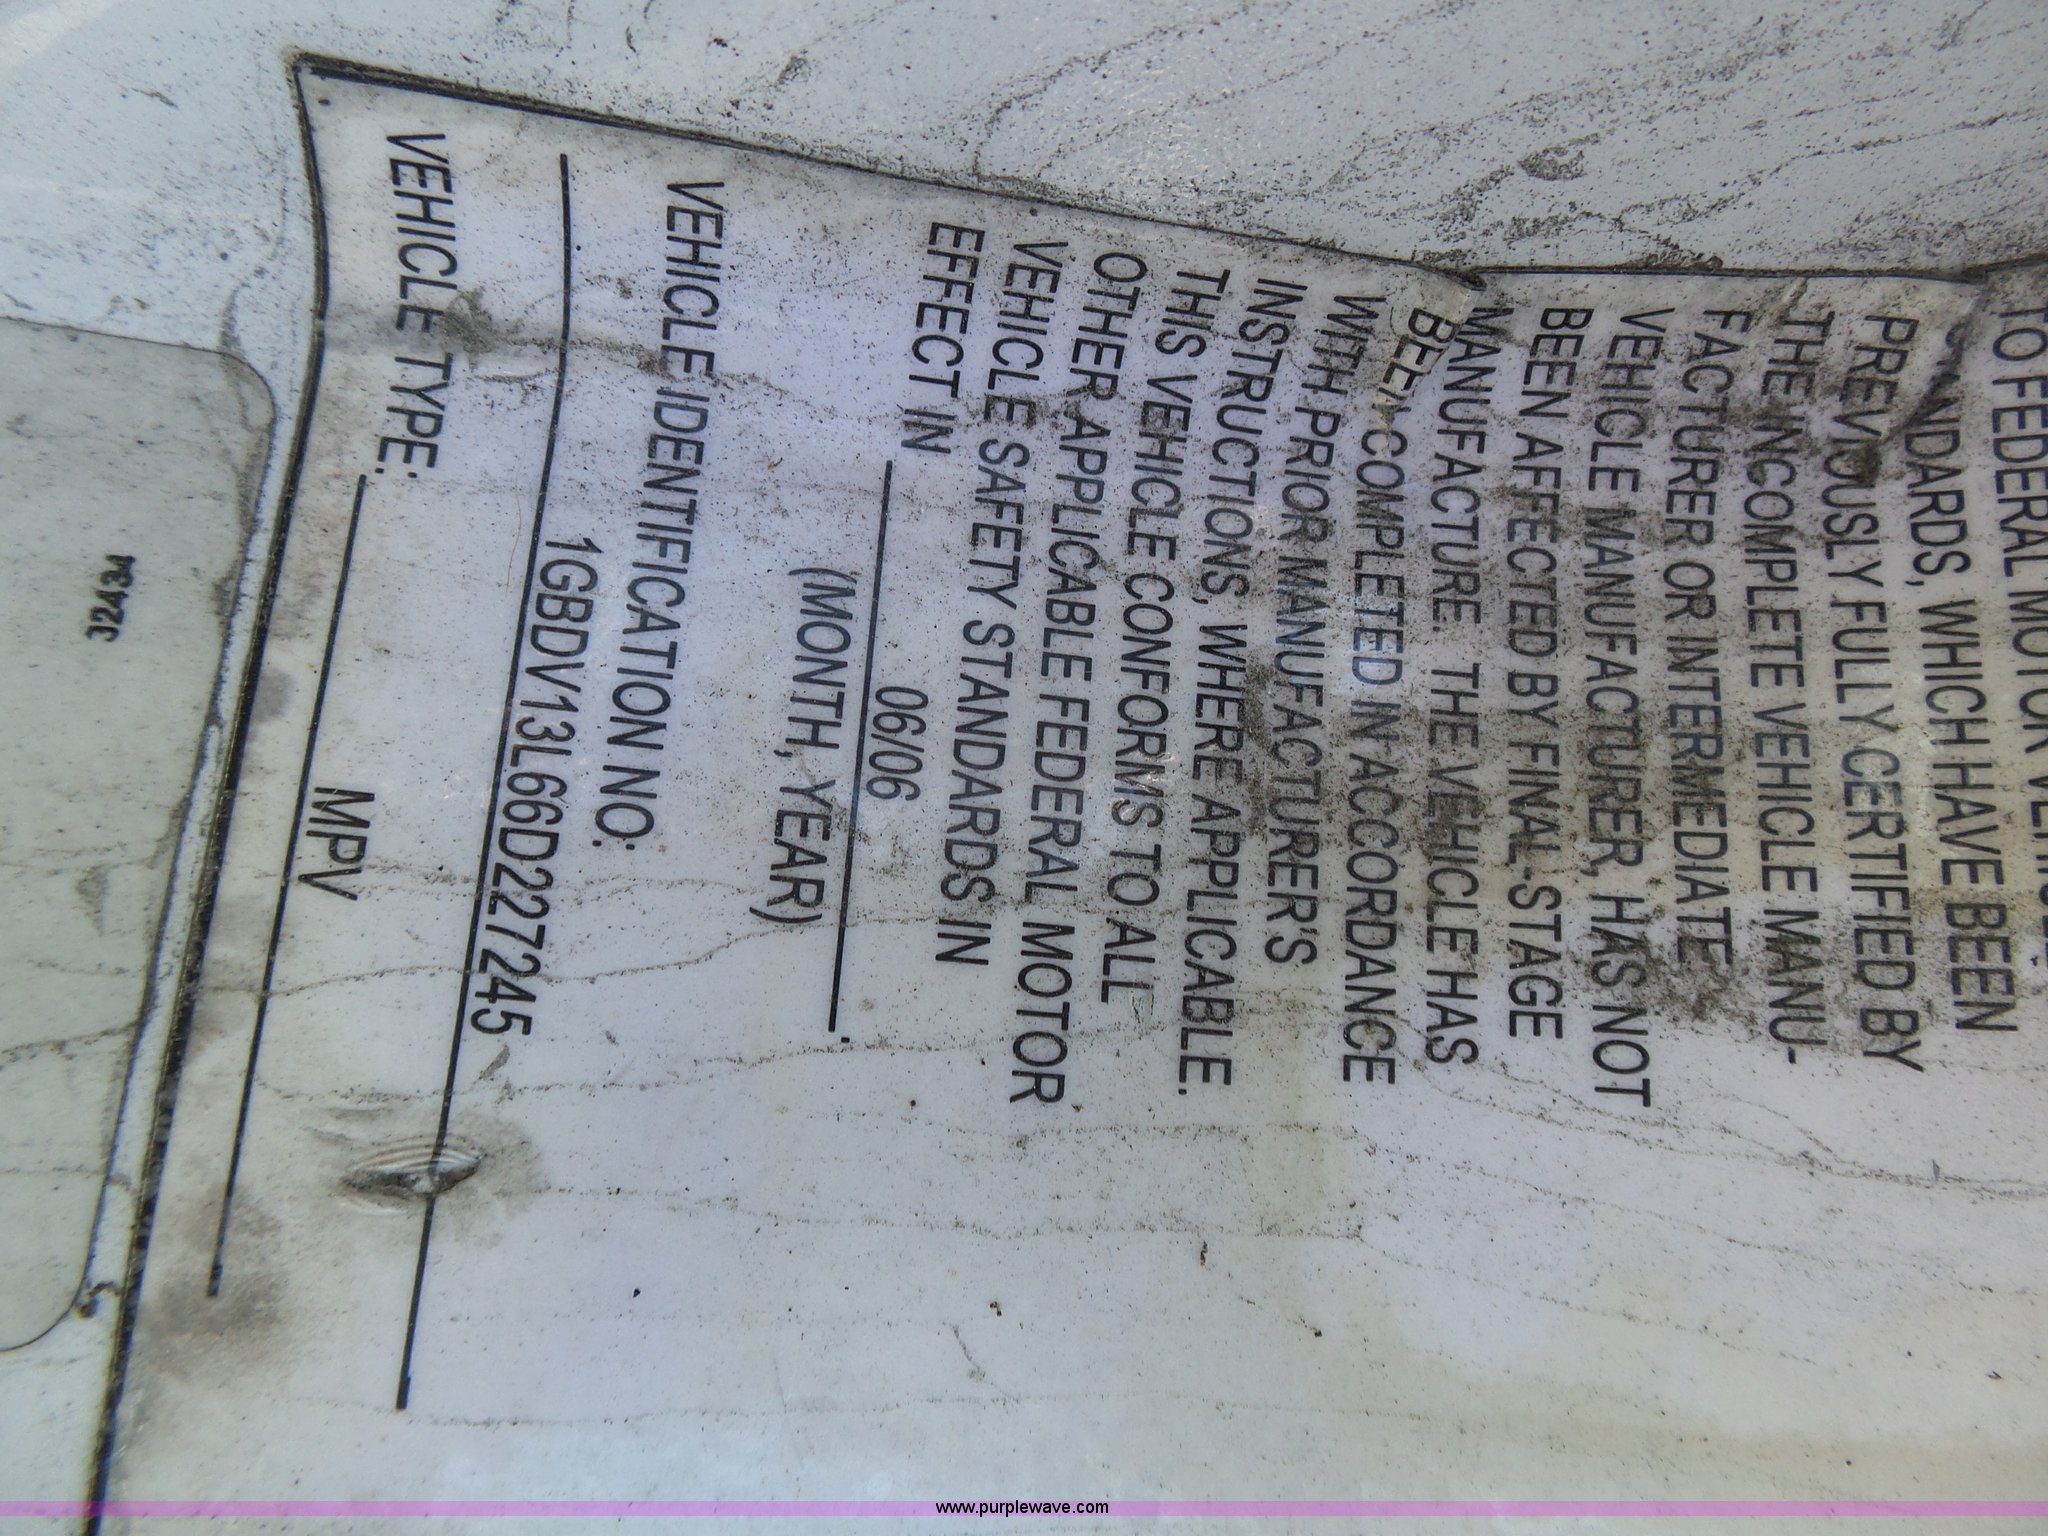 TO FEDERAL MOTOR VEHICLE
STANDARDS, WHICH HAVE BEEN
PREVIOUSLY FULLY CERTIFIED BY
THE INCOMPLETE VEHICLE MANU-
FACTURER OR INTERMEDIATE
VEHICLE MANUFACTURER, HAS NOT
BEEN AFFECTED BY FINAL-STAGE
MANUFACTURE. THE VEHICLE HAS
BEEN COMPLETED IN ACCORDANCE
WITH PRIOR MANUFACTURER'S
INSTRUCTIONS, WHERE APPLICABLE.
THIS VEHICLE CONFORMS TO ALL
OTHER APPLICABLE FEDERAL MOTOR
VEHICLE SAFETY STANDARDS IN
EFFECT IN 06/06.
(MONTH, YEAR)
VEHICLE IDENTIFICATION NO:
1GBDV13L66D227245
VEHICLE TYPE: MPV
32434
www.purplewave.com